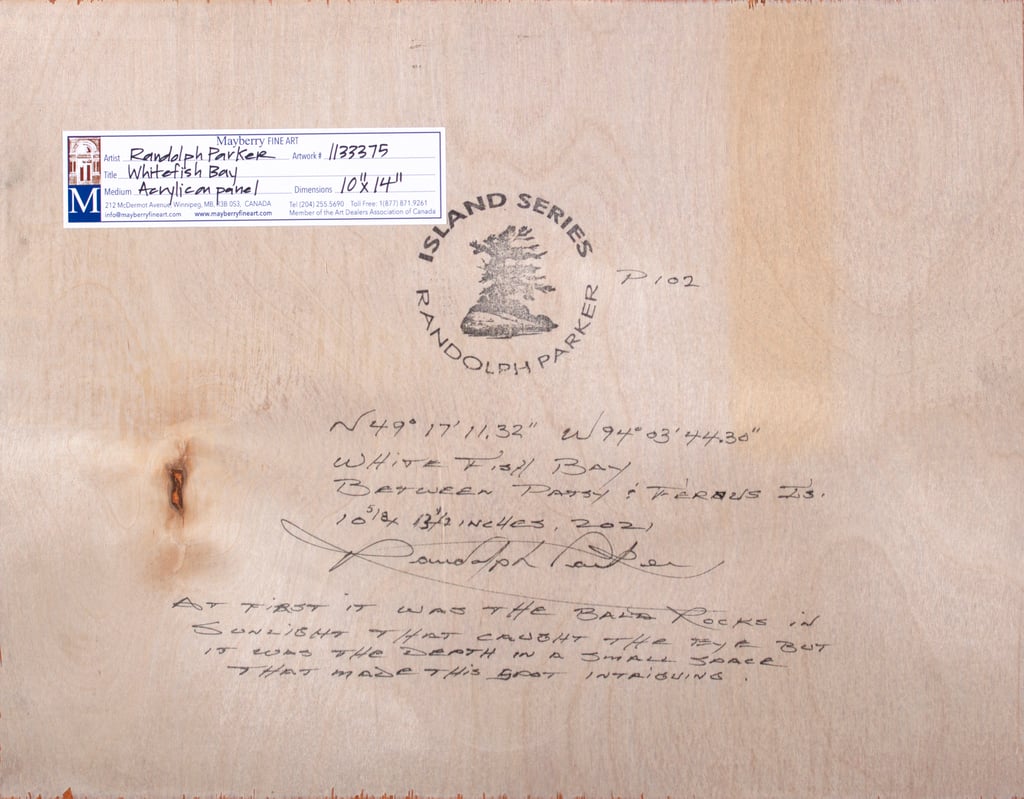 Mayberry FINE ART
Artist Randolph Parker Artwork # 1133375
Title Whitefish Bay
Medium Acrylic on panel Dimensions 10" x 14"
M
212 McDermot Avenue, Winnipeg, MB, R3B 0S3, CANADA Tel (204) 255.5690 Toll Free: 1(877) 871.9261
info@mayberryfineart.com www.mayberryfineart.com Member of the Art Dealers Association of Canada
ISLAND SERIES
RANDOLPH PARKER
P 102
N 49° 17' 11.32" W 94° 03' 44.30"
WHITE FISH BAY
BETWEEN PATSY & FERGUS IS.
10 5/8 x 13 1/2 INCHES, 2021
Randolph Parker
AT FIRST IT WAS THE BALD ROCKS IN
SUNLIGHT THAT CAUGHT THE EYE BUT
IT WAS THE DEPTH IN A SMALL SPACE
THAT MADE THIS SPOT INTRIGUING.